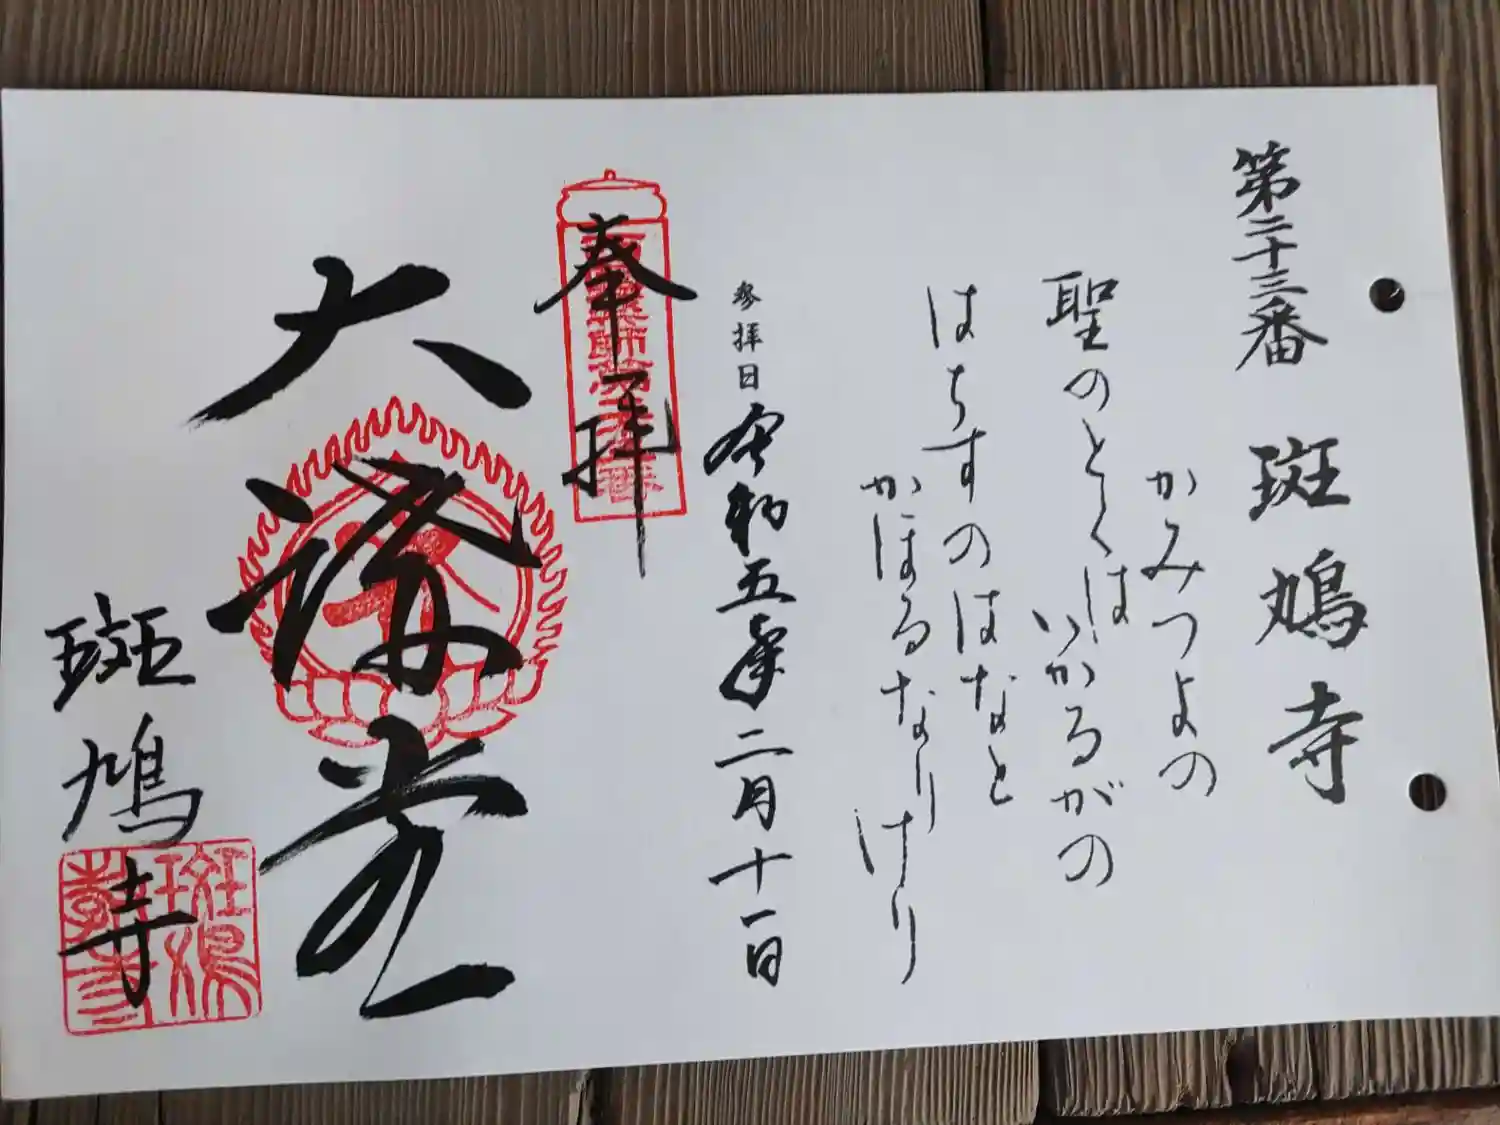 第二十三番 斑鳩寺
かみつよの
聖のとくはいかるがの
はちすのはなと
かほるなりけり
参拝日 令和五年二月十一日
奉拝
大講堂
斑鳩寺